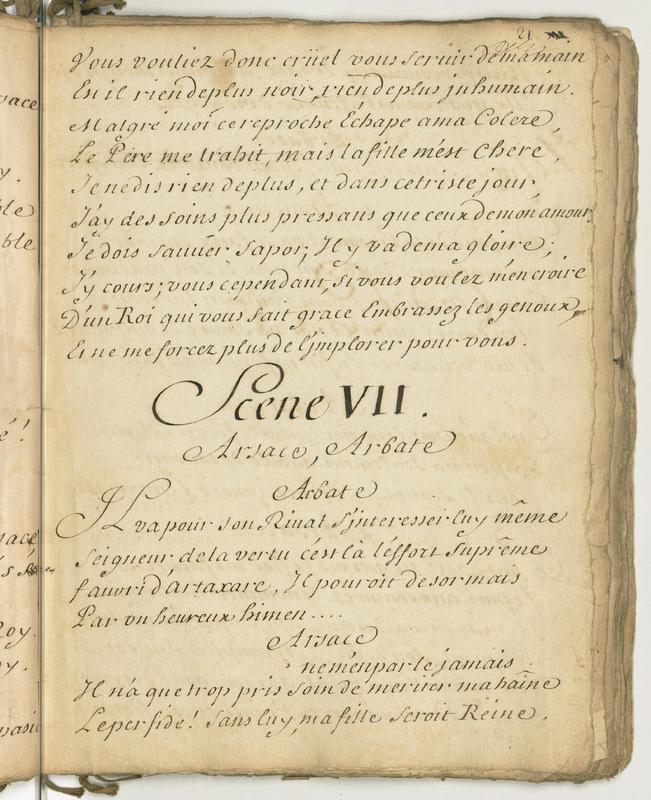 21
Vous vouliez donc crüel vous servir de ma main
Est il rien de plus noir, rien de plus jnhumain.
Malgré moi ce reproche Echape a ma Colere,
Le Pere me trahit, mais la fille m'est Chere,
Je ne dis rien de plus, et dans ce triste jour,
J'ay des soins plus pressans que ceux de mon amour.
Je dois sauver Sapor; Il y va de ma gloire;
J'y cours; vous cependant, si vous voulez m'en croire
D'un Roi qui vous fait grace Embrassez les genoux,
Et ne me forcez plus de l'jmplorer pour vous.
Scene VII.
Arsace, Arbate
Arbate
Il va pour son Rival s'jnteresser luy même
Seigneur de la vertu c'est là l'éffort Suprême
favori d'Artaxare, Il pouroit desormais
Par vn heureux himen....
Arsace
ne m'en parle jamais
Il n'a que trop pris soin de meriter ma haîne
Le perfide! sans luy, ma fille seroit Reine.